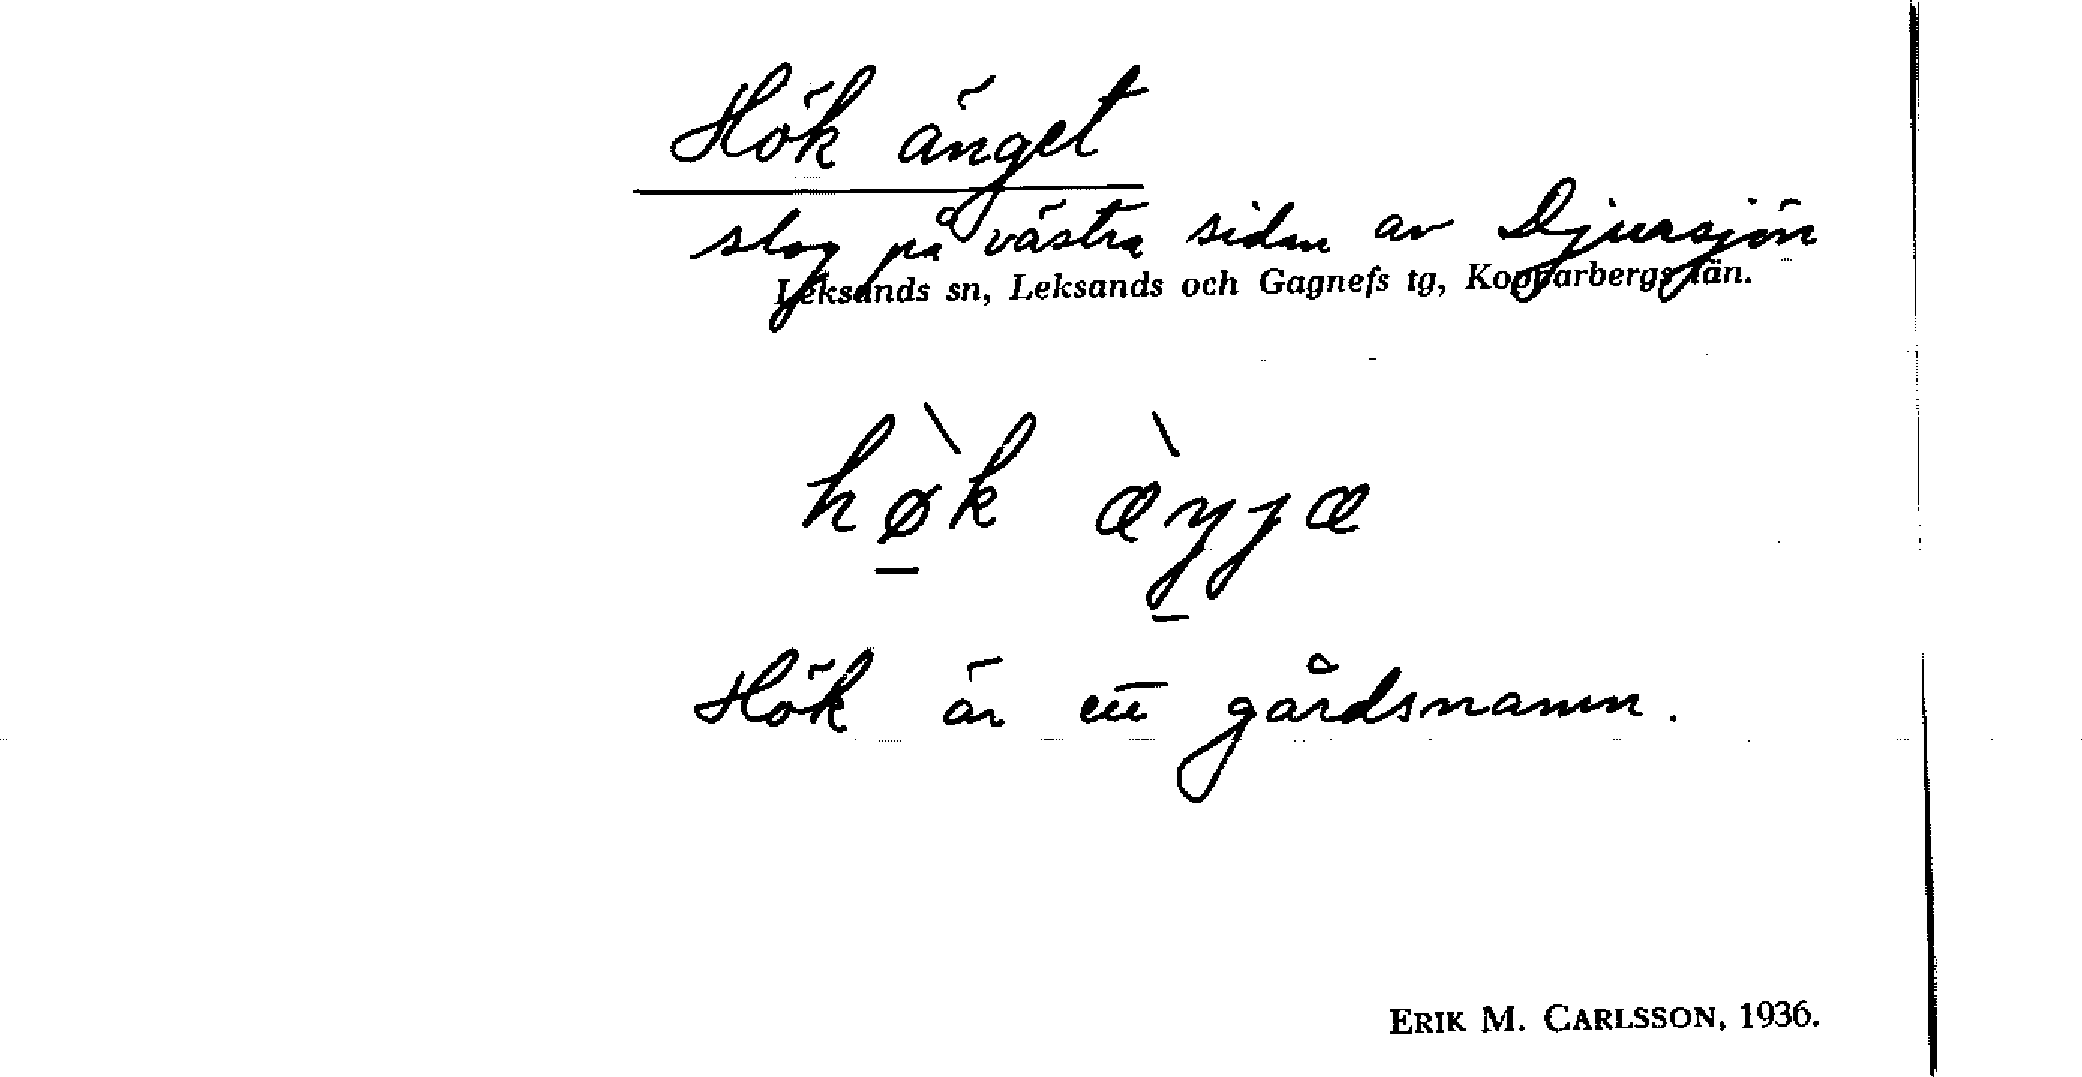 Hök änget
slog på västra sidan av Djursjön
Leksands sn, Leksands och Gagnefs tg, Kopparbergs län.
hø̀k æ̀ŋjæ
Hök är ett gårdsnamn.
ERIK M. CARLSSON, 1936.